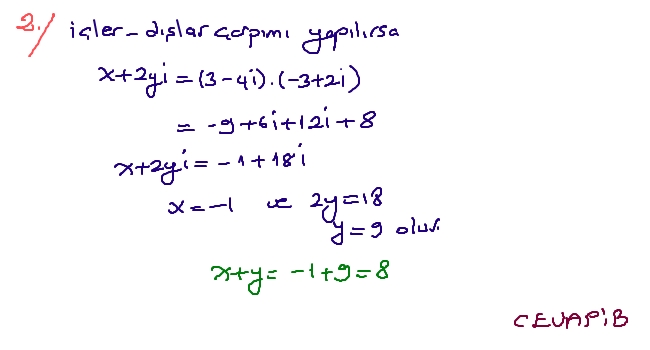 2./ içler-dışlar çarpımı yapılırsa
x+2yi = (3-4i).(-3+2i)
= -9+6i+12i+8
x+2yi = -1+18i
x=-1 ve 2y=18
y=9 olur.
x+y= -1+9=8
CEVAP:B